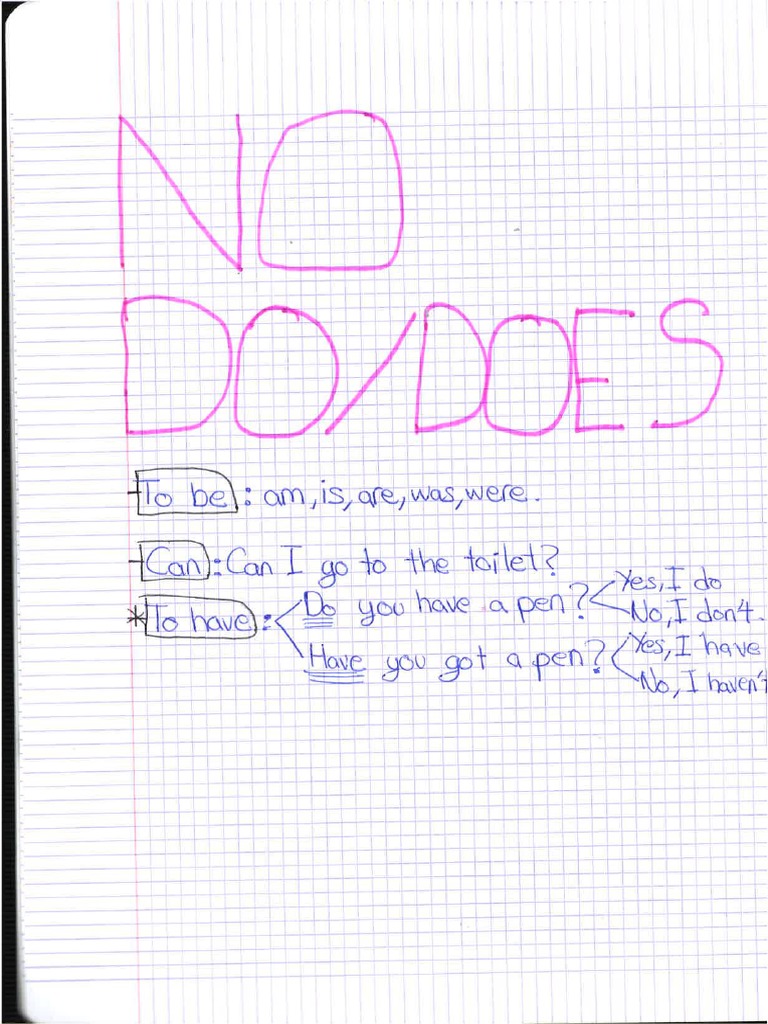 NO
DO/DOES
-To be: am, is, are, was, were.
-Can: Can I go to the toilet?
*To have: Do you have a pen? Yes, I do
No, I don't.
Have you got a pen? Yes, I have
No, I haven't